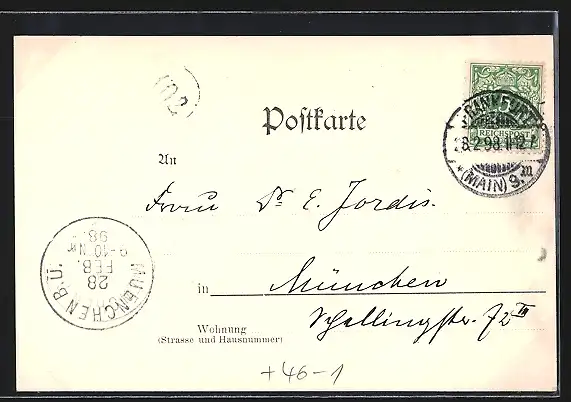 Postkarte
REICHSPOST
FRANKFURT
28.2.98.11-12 V.
* (MAIN) 9. m
An
Frau Dr. E. Jordis.
MUENCHEN B.Ü.
28
FEB.
9-10 Nm
98.
in München
Wohnung
Schellingstr. 72 III
(Strasse und Hausnummer)
+46-1